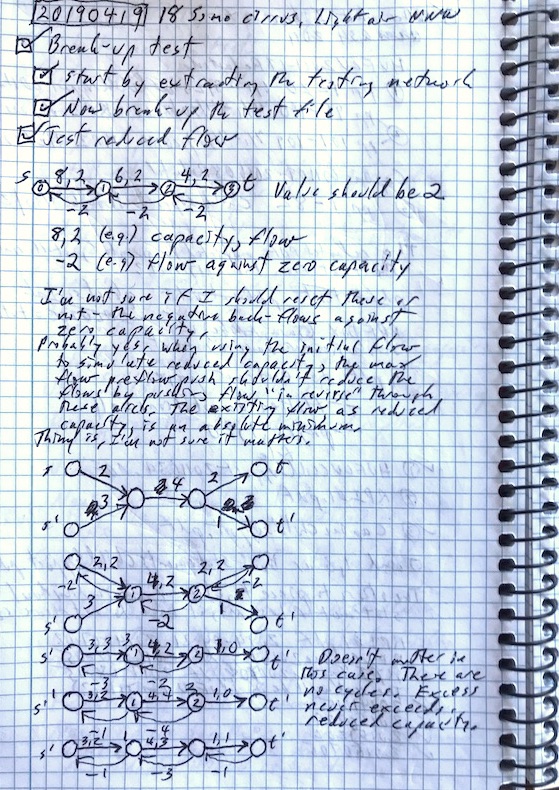 20190419 18 Some cirrus, Light air NNW
Break-up test
Start by extracting the testing network
Now break-up the test file
Test reduced flow
s 8, 2 6, 2 4, 2 t Value should be 2
0 1 2 3
-2 -2 -2
8, 2 (e.g.) capacity, flow
-2 (e.g) flow against zero capacity
I'm not sure if I should reset these or
not - the negative back-flows against
zero capacity.
Probably yes, when using the initial flow
to simulate reduced capacity, the max
flow preflow push shouldn't reduce the
flows by pushing flow "in reverse" through
these arcs. The existing flow as reduced
capacity, is an absolute minimum.
Thing is, I'm not sure it matters.
s 2 2 t
4
s' 3 1 t'
2, 2 2, 2
-2 1 4, 2 2 -2
s' 3 -2 1 t'
s' 3, 3 3 1 4, 2 2 1, 0 t'
-3 -2
s' 3, 2 1 4, 4 2 2 1, 0 t'
-4
s' 3, 2 1 4, 3 1, 1 t'
-1 -3 -1
Doesn't matter in
this case. There are
no cycles. Excess
never exceeds
reduced capacity.